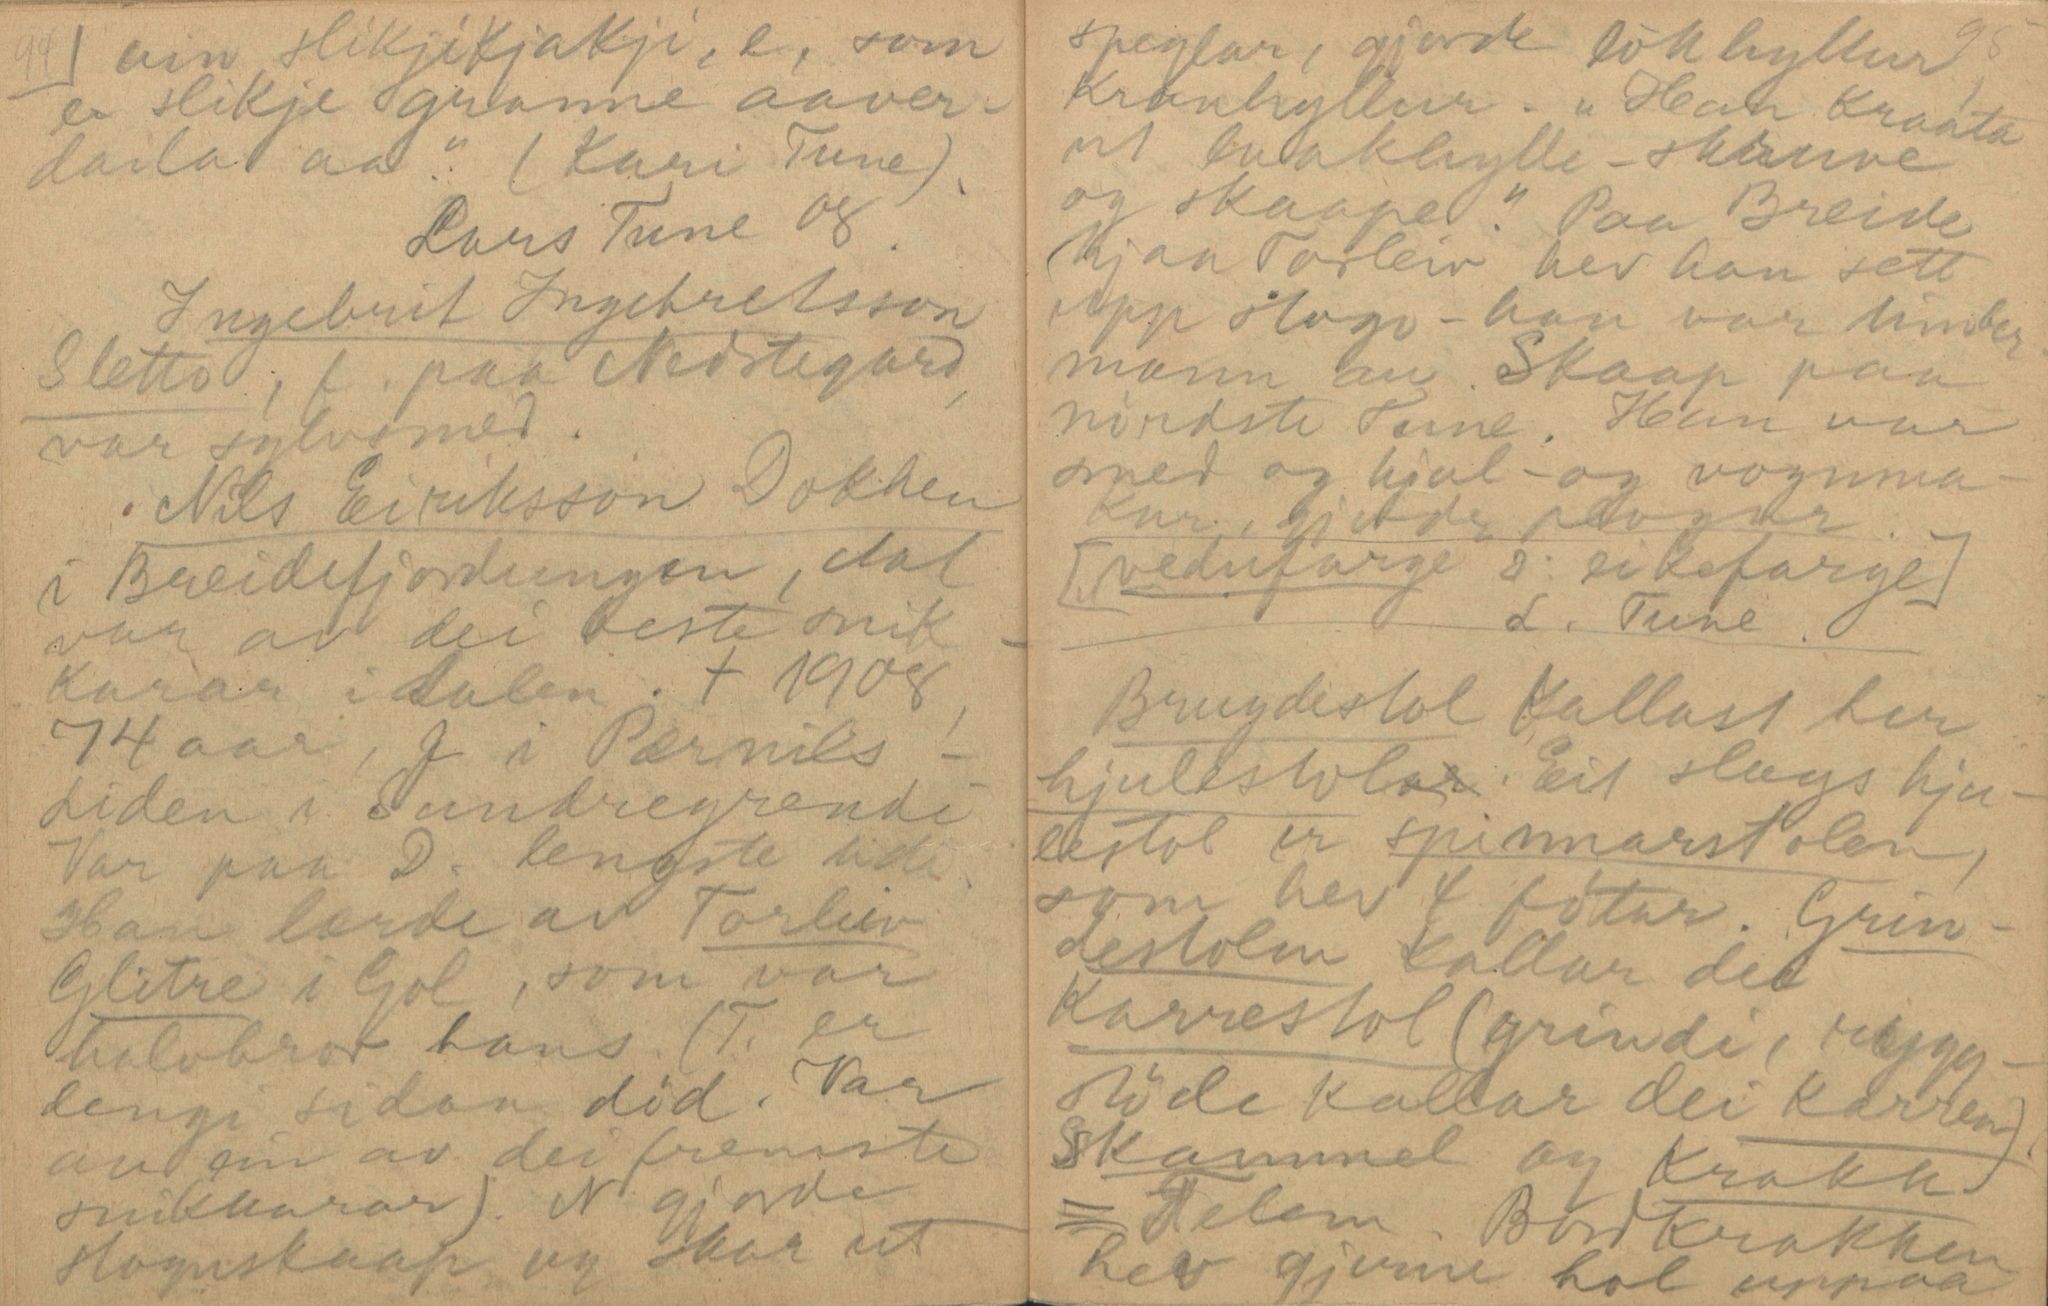 94] ein slikjikjakji, e, som
er slikje granne aaver-
daila aa". (Kari Tune).
Lars Tune 08.
Ingebrit Ingebretsson
Sletto, f. paa Nedstegard,
var sylvsmed.
Nils Eiriksson Dokken
i Breidefjordungen, Aal
var av dei beste snik-
karar i dalen. † 1908,
74 aar, f i Pernils-
liden i Sundregrendi
Var paa D. lengste tidi.
Han lærde av Torleiv
Glitre i Gol, som var
halvbror hans. (T. er
lengi sidan död. Var
au ein av dei fremste
snikkarar). N gjorde
stoguskaap og skar ut
95
speglar, gjorde lökhyllur,
kranhyllur. "Han kraata
ut
og skaape." Paa Breide
hjaa Torleiv hev han sett
upp stogo - han var timber-
mann au. Skaap paa
nördste Tune. Han var
smed og hjul- og vognma-
kar, gjorde plogar.
[vedufarge ɔ: eikefarge]
L. Tune.
Brugdestol kallast her
hjulestolar. Eit slags hju-
lestol er spinnarstolen,
som hev 4 fötar. Grin-
destolen kallar dei
Karrestol (grindi, rygg-
stöde kallar dei karren).
Skammel og Krakk
= Telem. Bordkrakken
hev gjerne hol uppaa